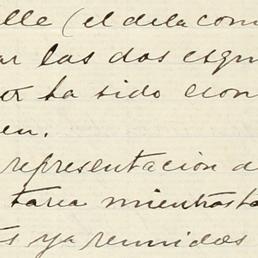 lle (el de la com
ar las dos esqu
ha sido con
en.
representacion d
tarea mientras t
ts ya reunidos